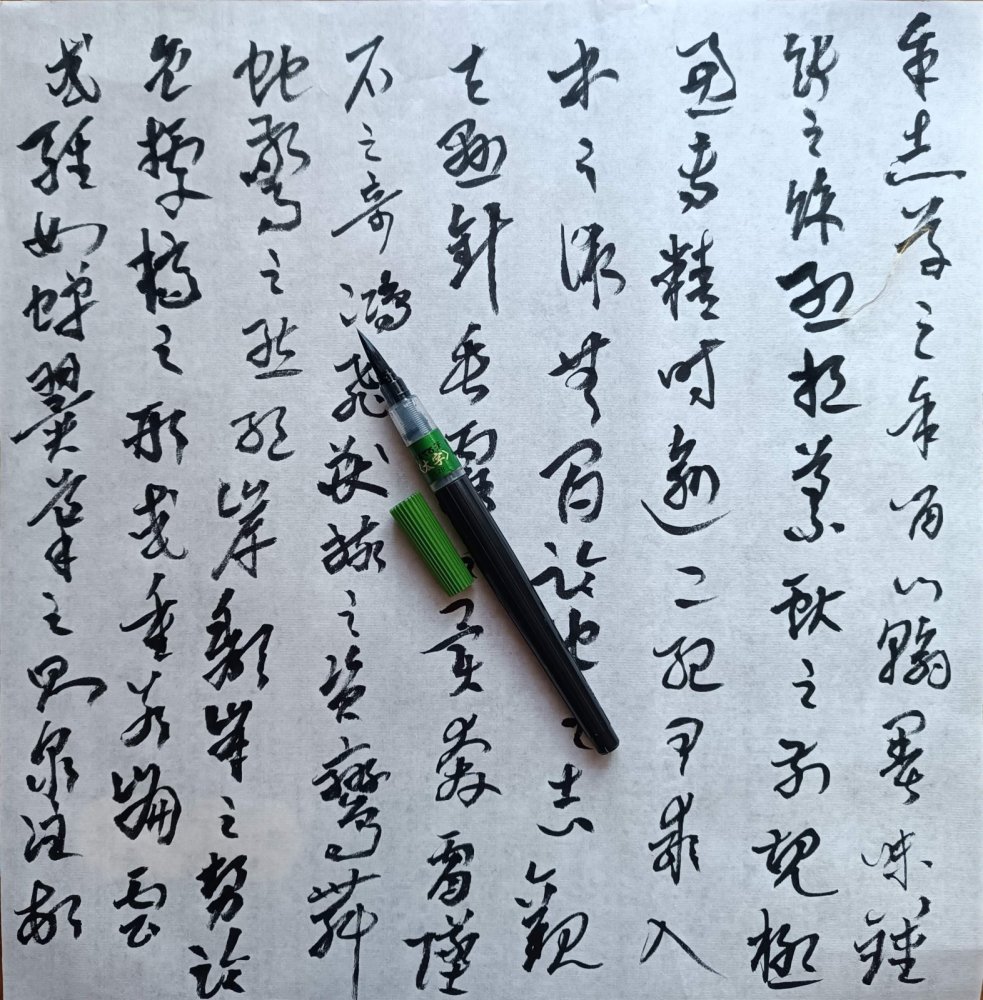 余志學之年留心翰墨味鍾
張之餘烈挹羲獻之前規極
慮專精時逾二紀有乖入
木之術無間臨池之志觀
夫懸針垂露之異奔雷墜
石之奇鴻飛獸駭之資鸞舞
蛇驚之態絕岸頹峰之勢臨
危據槁之形或重若崩雲
或輕如蟬翼導之則泉注頓
(太字)